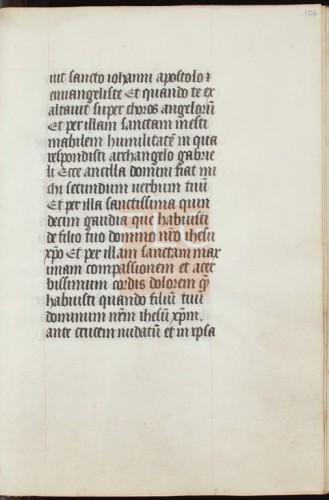 106
uit sancto iohanni apostolo ⁊
euuangeliste Et quando te ex
altauit super choros angelorū
Et per illam sanctam inesti
mabilem humilitatē in qua
respondisti archangelo gabrie
li Ecce ancilla domini fiat mi
chi secundum uerbum tuū
Et per illa sanctissima quin
decim gaudia que habuisti
de filio tuo domino nr̄o ihesu
xp̄o Et per illam sanctam max
imam compassionem et acer
bissimum cordis dolorem q̄
habuisti quando filiū tuū
dominum nr̄m ihesū xp̄m.
ante crucem nudatū et in ipsa